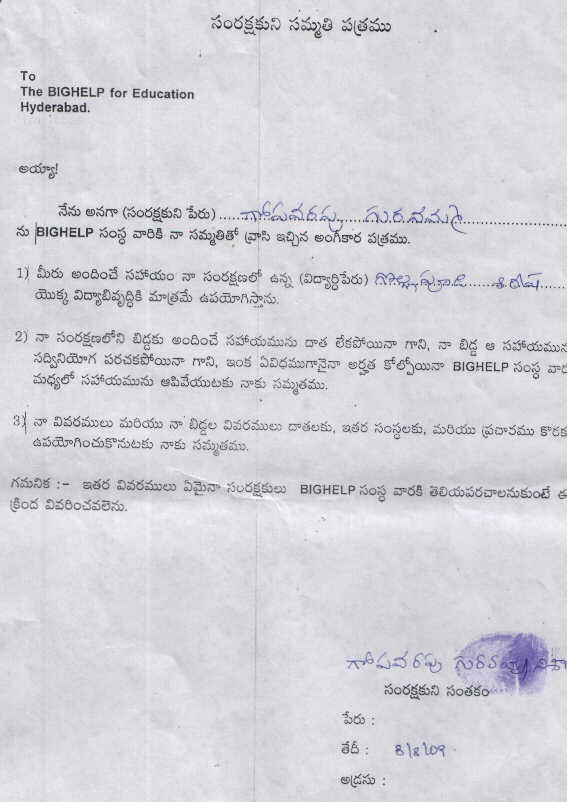 సంరక్షకుని సమ్మతి పత్రము
To
The BIGHELP for Education
Hyderabad.
అయ్యా!
నేను అనగా (సంరక్షకుని పేరు) ...గోపవరపు......గురవమ్మ...
ను BIGHELP సంస్థ వారికి నా సమ్మతితో వ్రాసి ఇచ్చిన అంగీకార పత్రము.
1) మీరు అందించే సహాయం నా సంరక్షణలో ఉన్న (విద్యార్థిపేరు)
యొక్క విద్యాభివృద్ధికి మాత్రమే ఉపయోగిస్తాను.
2) నా సంరక్షణలోని బిడ్డకు అందించే సహాయమును దాత లేకపోయినా గాని, నా బిడ్డ ఆ సహాయమున
సద్వినియోగ పరచకపోయినా గాని, ఇంక ఏవిధముగానైనా అర్హత కోల్పోయినా BIGHELP సంస్థ వార
మధ్యలో సహాయమును ఆపివేయుటకు నాకు సమ్మతము.
3) నా వివరములు మరియు నా బిడ్డల వివరములు దాతలకు, ఇతర సంస్థలకు, మరియు ప్రచారము కొరక
ఉపయోగించుకొనుటకు నాకు సమ్మతము.
గమనిక :- ఇతర వివరములు ఏమైనా సంరక్షకులు BIGHELP సంస్థ వారకి తెలియపరచాలనుకుంటే ఈ
క్రింద వివరించవలెను.
గోపవరపు
సంరక్షకుని సంతకం
పేరు :
తేదీ : 8/8/09
అడ్రసు :